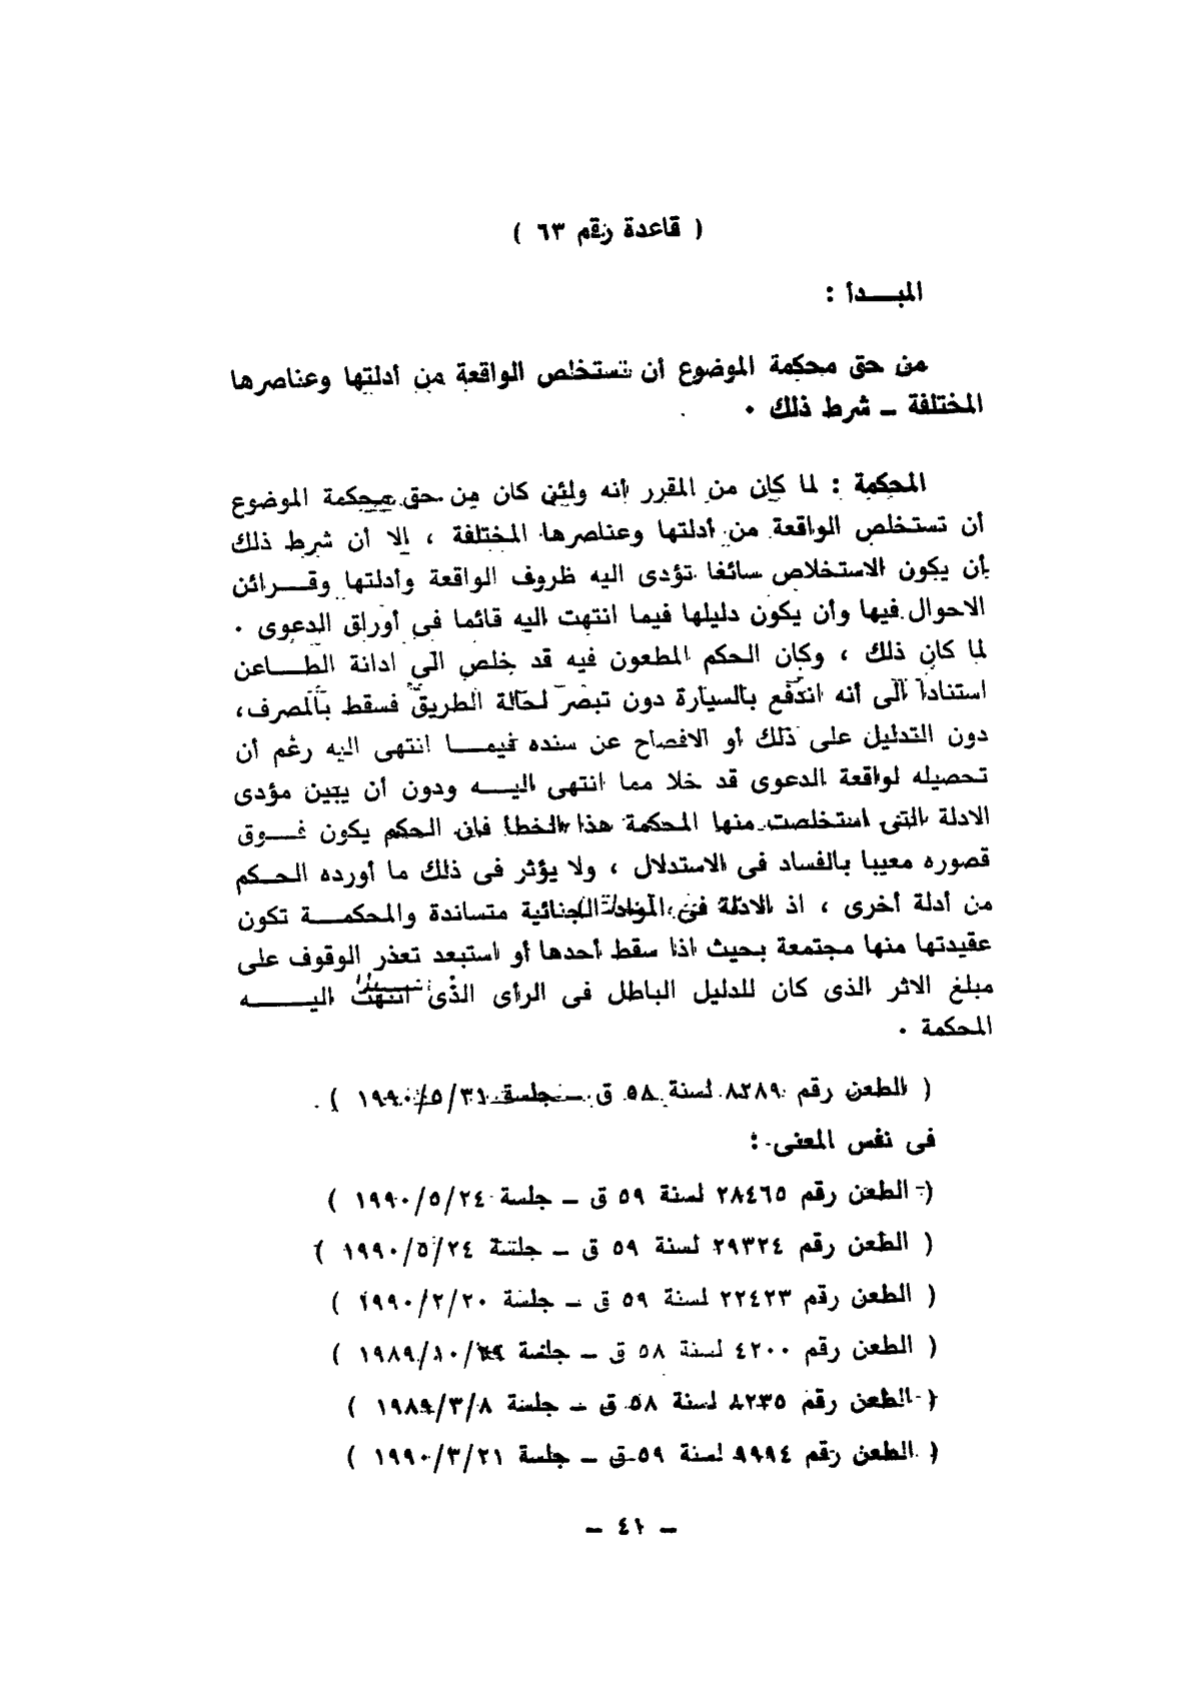 ( قاعدة رقم ٦٣ )
المبـــدأ :
من حق محكمة الموضوع أن تستخلص الواقعة من أدلتها وعناصرها
المختلفة ــ شرط ذلك ٠
المحكمة : لما كان من المقرر أنه ولئن كان من حق محكمة الموضوع
أن تستخلص الواقعة من أدلتها وعناصرها المختلفة ، الا أن شرط ذلك
أن يكون الاستخلاص سائغا تؤدى اليه ظروف الواقعة وأدلتها وقـــرائن
الاحوال فيها وأن يكون دليلها فيما انتهت اليه قائما فى أوراق الدعوى ٠
لما كان ذلك ، وكان الحكم المطعون فيه قد خلص الى ادانة الطـــاعن
استنادا الى أنه اندفع بالسيارة دون تبصر لحالة الطريق فسقط بالمصرف،
دون التدليل على ذلك أو الافصاح عن سنده فيمـــا انتهى اليه رغم أن
تحصيله لواقعة الدعوى قد خلا مما انتهى اليـــه ودون أن يبين مؤدى
الادلة التى استخلصت منها المحكمة هذا الخطأ فان الحكم يكون فـــوق
قصوره معيبا بالفساد فى الاستدلال ، ولا يؤثر فى ذلك ما أورده الحـكم
من أدلة أخرى ، اذ الادلة فى المواد الجنائية متساندة والمحكمـــة تكون
عقيدتها منها مجتمعة بحيث اذا سقط أحدها أو استبعد تعذر الوقوف على
مبلغ الاثر الذى كان للدليل الباطل فى الرأى الذى انتهت اليـــــه
المحكمة ٠
( الطعن رقم ٨٢٨٩ لسنة ٥٨ ق ــ جلسة ١٩٩٠/٥/٣١ )
فى نفس المعنى :
( الطعن رقم ٢٨٤٦٥ لسنة ٥٩ ق ــ جلسة ١٩٩٠/٥/٢٤ )
( الطعن رقم ٢٩٣٢٤ لسنة ٥٩ ق ــ جلسة ١٩٩٠/٥/٢٤ )
( الطعن رقم ٢٢٤٢٣ لسنة ٥٩ ق ــ جلسة ١٩٩٠/٢/٢٠ )
( الطعن رقم ٤٢٠٠ لسنة ٥٨ ق ــ جلسة
( الطعن رقم ٨٢٣٥ لسنة ٥٨ ق ــ جلسة ١٩٨٩/٣/٨ )
( الطعن رقم ٩٩٩٤ لسنة ٥٩ ق ــ جلسة ١٩٩٠/٣/٢١ )
ــ ٤١ ــ